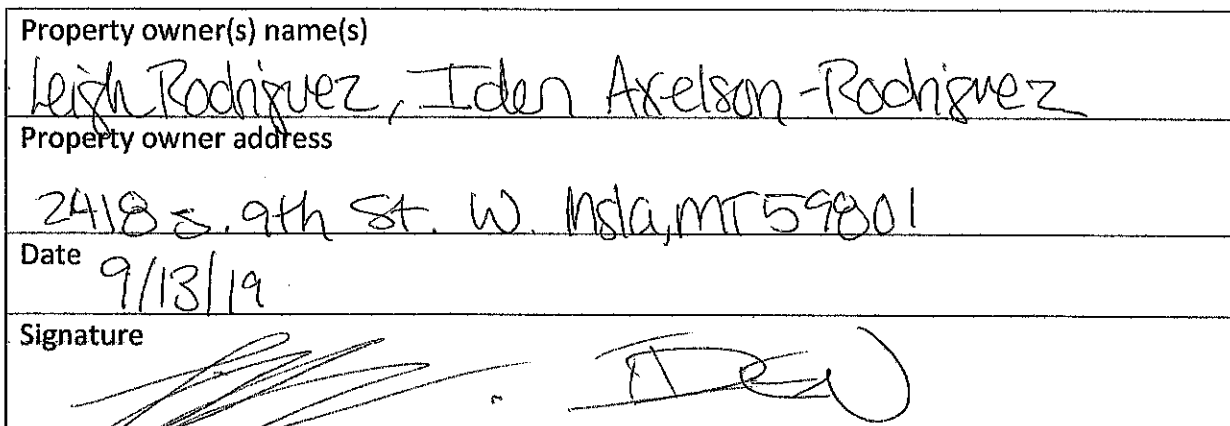 Property owner(s) name(s)
Leigh Rodriguez, Iden Axelson-Rodriguez
Property owner address
2418 S. 9th St. W. Msla, MT 59801
Date 9/13/19
Signature
Iden